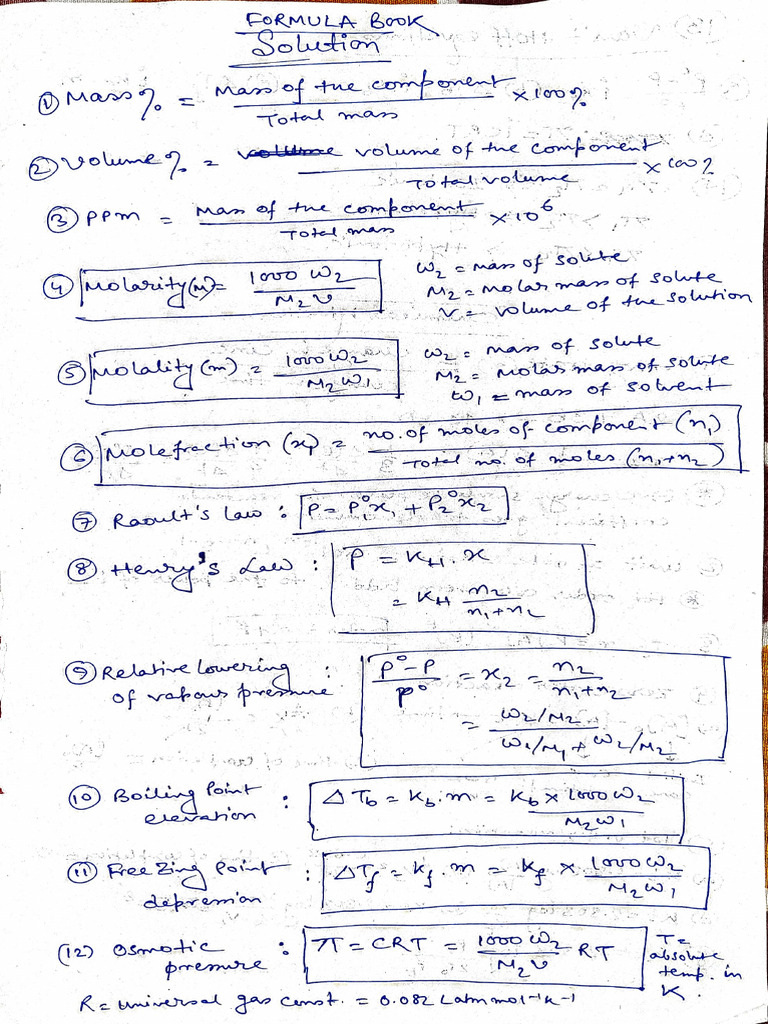 FORMULA BOOK
Solution
① Mass % = Mass of the component / Total mass × 100%
② Volume % = volume of the component / Total volume × 100%
③ PPm = Mass of the component / Total mass × 10⁶
④ Molarity (M) = 1000 W₂ / M₂ V
W₂ = mass of solute
M₂ = molar mass of solute
V = volume of the solution
⑤ Molality (m) = 1000 W₂ / M₂ W₁
W₂ = mass of solute
M₂ = Molar mass of solute
W₁ = mass of solvent
⑥ Molefraction (x₁) = no. of moles of component (n₁) / Total no. of moles (n₁+n₂)
⑦ Raoult's law : P = P₁°x₁ + P₂°x₂
⑧ Henry's Law : P = K_H . x
= K_H n₂ / n₁+n₂
⑨ Relative lowering of vapour pressure : P°-P / P° = x₂ = n₂ / n₁+n₂
= W₂/M₂ / W₁/M₁ + W₂/M₂
⑩ Boiling Point elevation : ΔT_b = K_b . m = K_b × 1000 W₂ / M₂ W₁
⑪ Freezing Point depression : ΔT_f = K_f . m = K_f × 1000 W₂ / M₂ W₁
(12) Osmotic pressure : π = CRT = 1000 W₂ / M₂ V RT
T = absolute temp. in K.
R = universal gas const. = 0.082 L atm mol⁻¹ K⁻¹